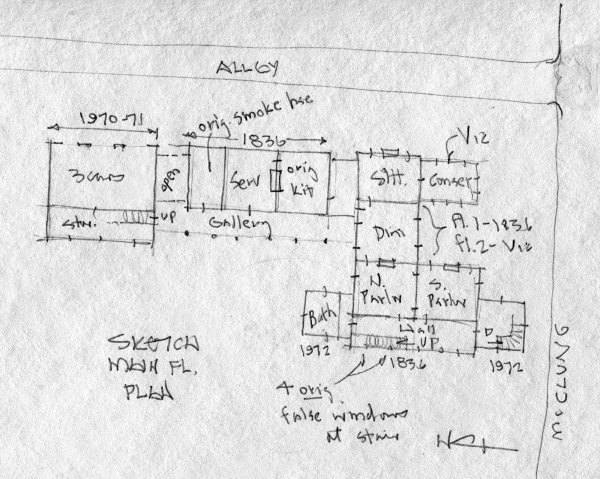 ALLEY
1970-71
orig. smoke hse
1836
Vic
3 cars
open
Serv
orig
Kit
Sitt.
Conser
Stor.
UP
Gallery
Dini
fl. 1-1836
fl. 2-Vic
N.
Parlor
S.
Parlor
Bath
Hall
UP
D
1972
1836
1972
SKETCH
MAIN FL.
PLAN
4 orig.
false windows
at stair